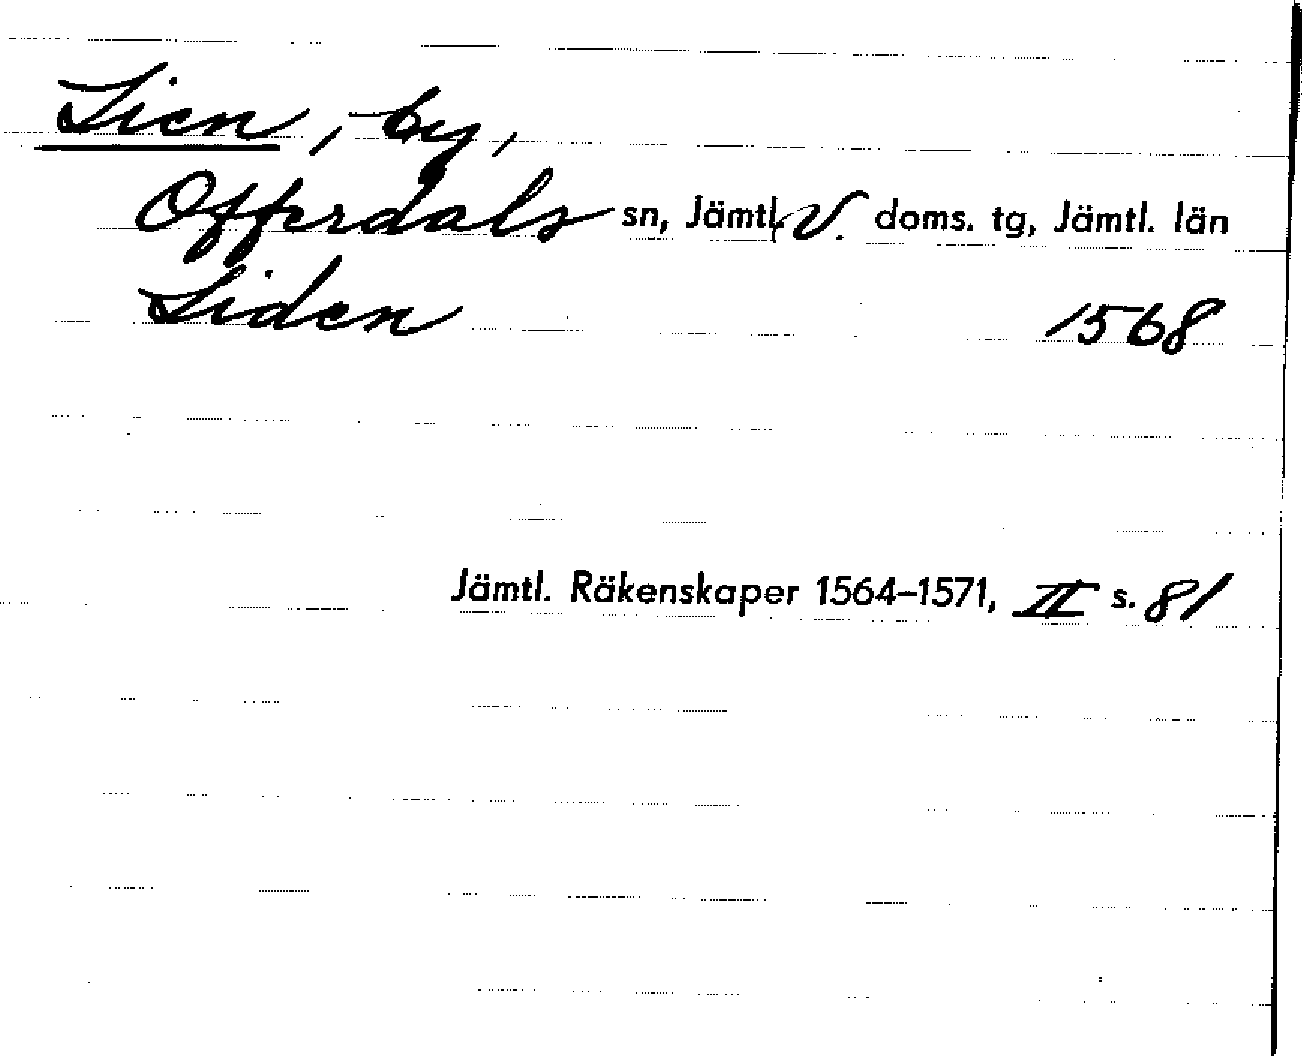 Lien, by,
Offerdals sn, Jämtl. V. doms. tg, Jämtl. län
Liden 1568
Jämtl. Räkenskaper 1564–1571, II s. 81